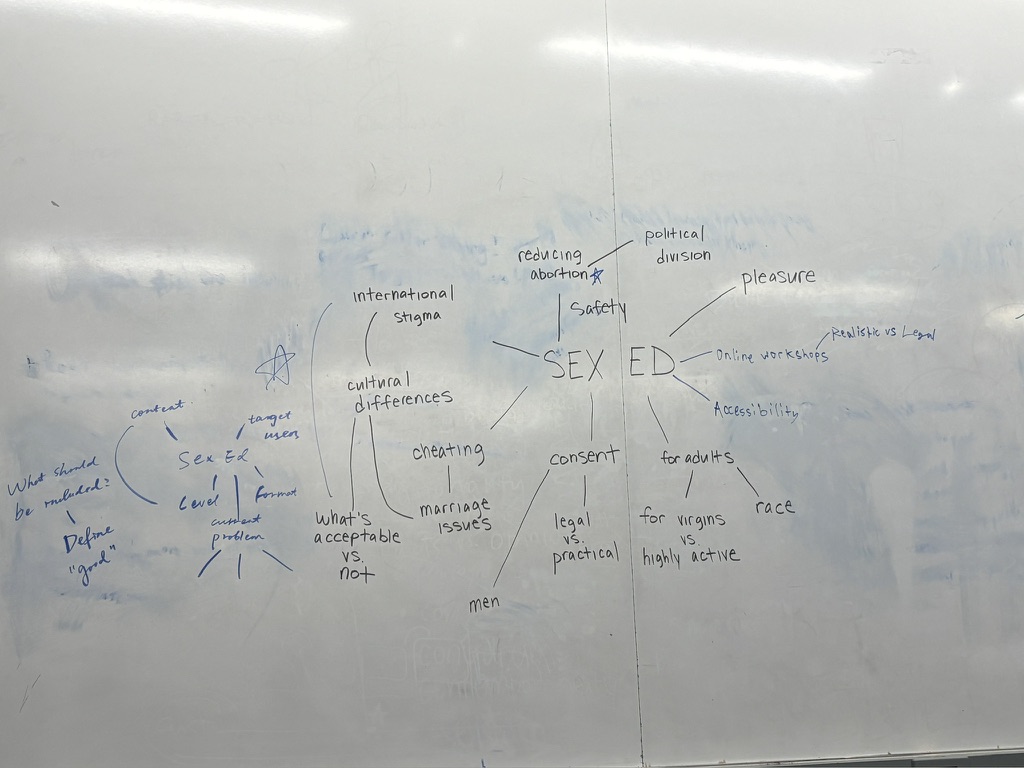 content
target
users
Sex Ed
Level
Format
current
problem
What should
be included?
Define
"good"
international
stigma
cultural
differences
what's
acceptable
vs.
not
cheating
marriage
issues
reducing
abortion
political
division
safety
SEX ED
pleasure
Online workshops
Realistic vs Legal
Accessibility
consent
legal
vs.
practical
men
for adults
for virgins
vs.
highly active
race